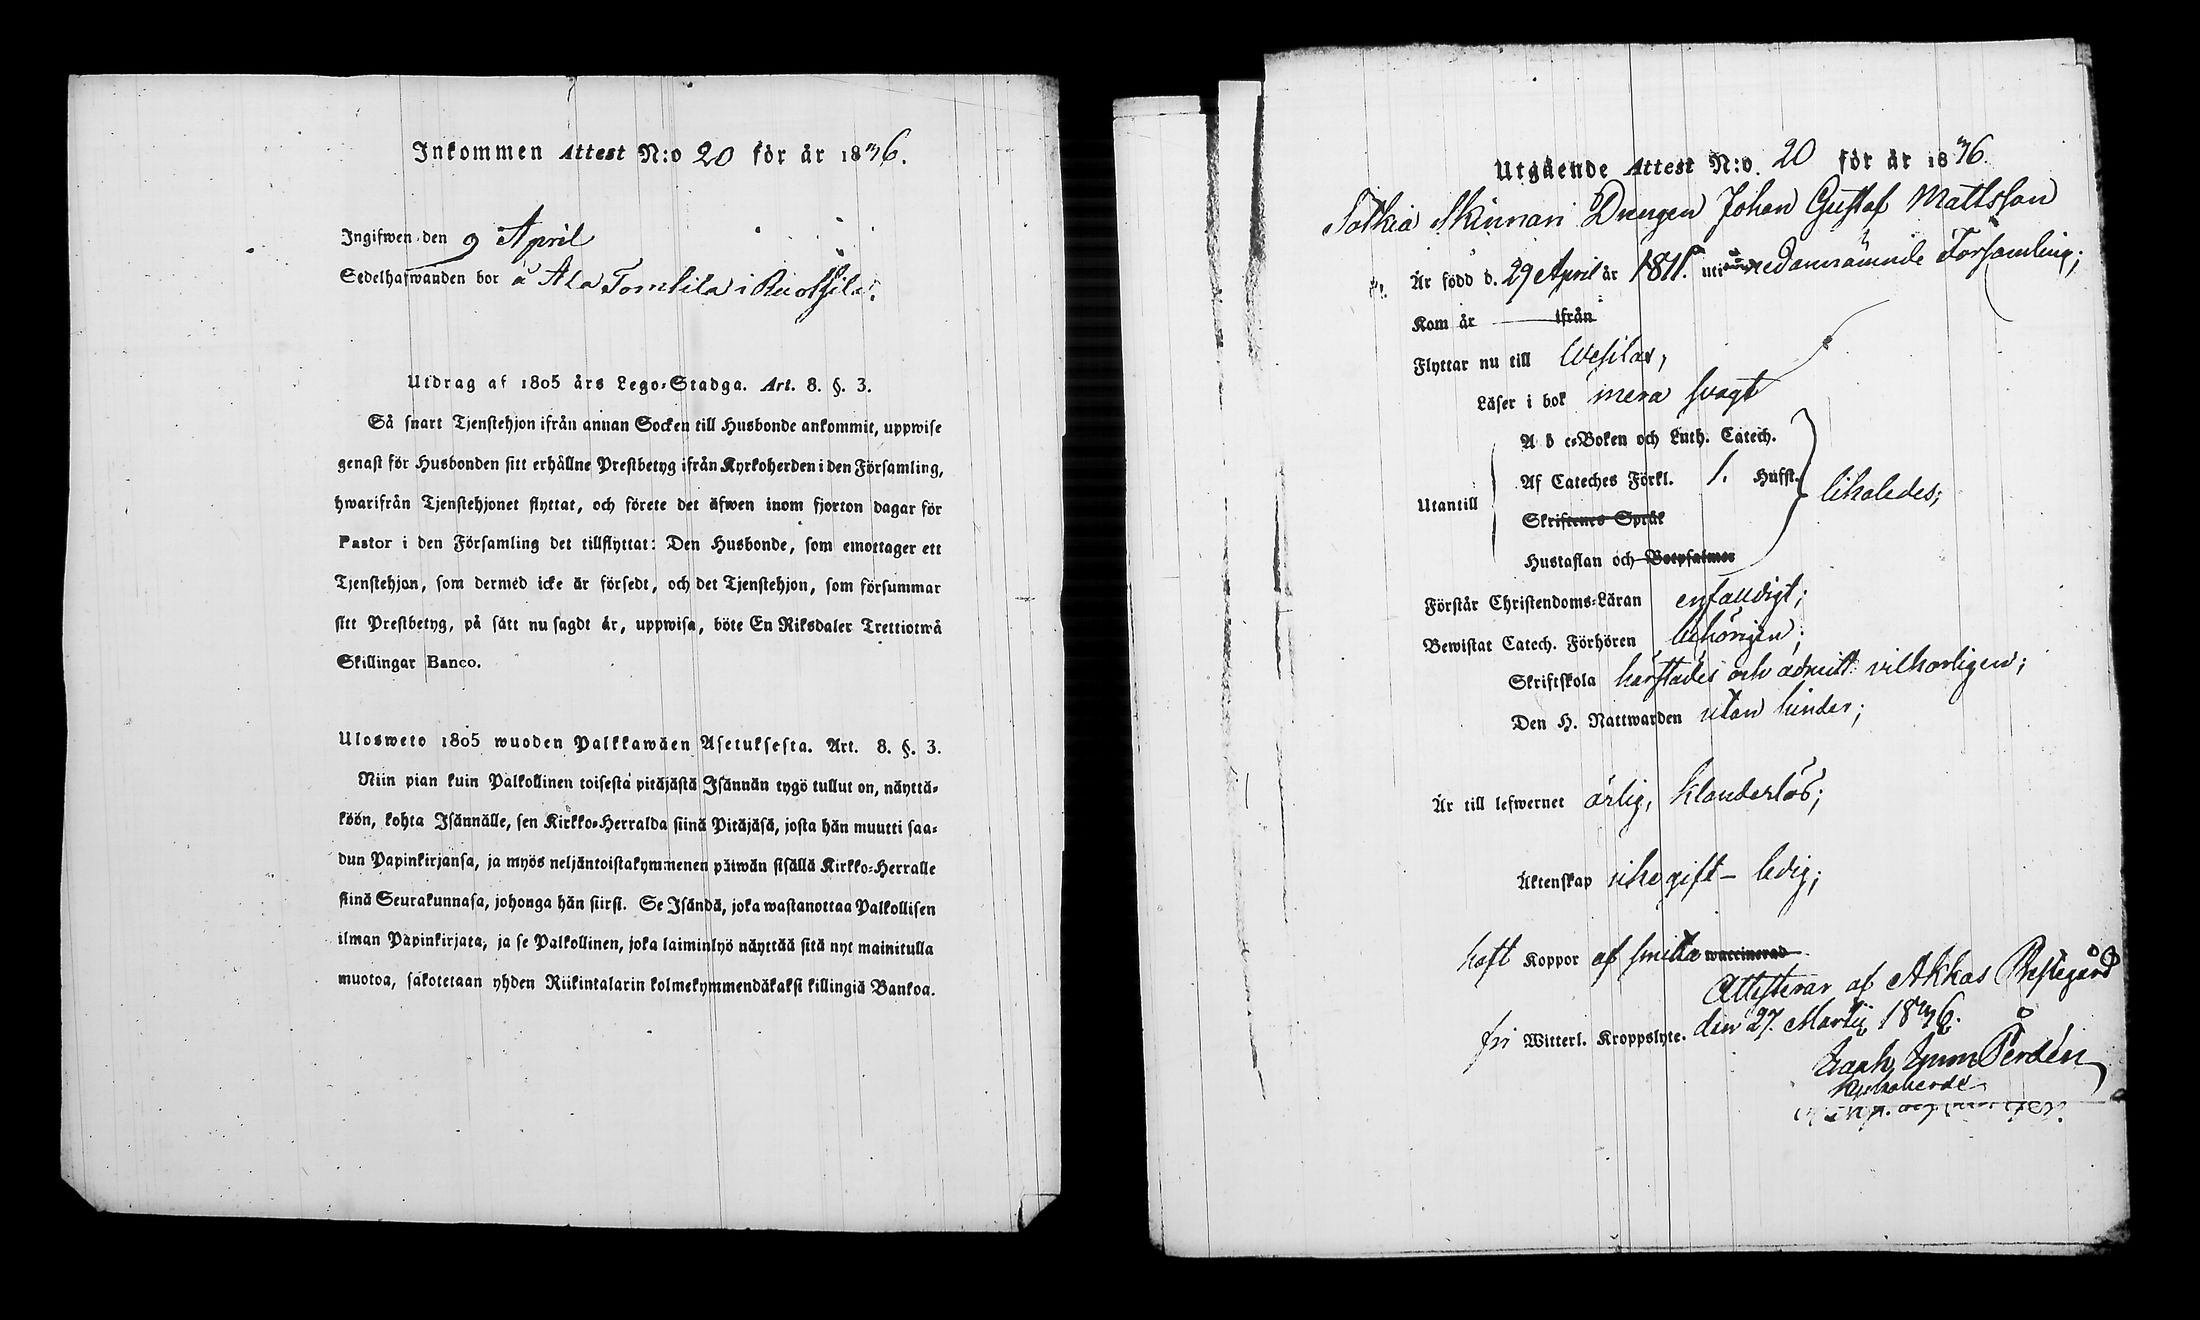 Inkommen Attest N:o 20 för år 1836.
Ingifwen den 9 April
Sedelhafwanden bor å Ala Tomtila i Ruotsila.
Utdrag af 1805 års Lego-Stadga. Art. 8. §. 3.
Så snart Tjenstehjon ifrån annan Socken till Husbonde ankommit, uppwise
genast för Husbonden sitt erhållne Prestbetyg ifrån Kyrkoherden i den Församling,
hwarifrån Tjenstehjonet flyttat, och förete det äfwen inom fjorton dagar för
Pastor i den Församling det tillflyttat: Den Husbonde, som emottager ett
Tjenstehjon, som dermed icke är försedt, och det Tjenstehjon, som försummar
sitt Prestbetyg, på sätt nu sagdt är, uppwisa, böte En Riksdaler Trettiotwå
Skillingar Banco.
Ulosweto 1805 wuoden Palkkawäen Asetuksesta. Art. 8. §. 3.
Niin pian kuin Palkollinen toisesta pitäjästä Isännän tygö tullut on, näyttä-
köön, kohta Isännälle, sen Kirkko-Herralda siinä Pitäjäsä, josta hän muutti saa-
dun Papinkirjansa, ja myös neljäntoistakymmenen päiwän sisällä Kirkko-Herralle
siinä Seurakunnasa, johonga hän siirsi. Se Isändä, joka wastanottaa Palkollisen
ilman Papinkirjata, ja se Palkollinen, joka laiminlyö näyttää sitä nyt mainitulla
muotoa, sakotetaan yhden Riikintalarin kolmekymmendäkaksi killingiä Bankoa.
Utgående Attest N:o. 20 för år 1836.
Skinnari Drengen Johan Gustaf Mattsson
Är född d. 29 April år 1811. uti nedannämnde Församling;
Kom år ifrån
Flyttar nu till Wesilax,
Läser i bok mera svagt
A b c-Boken och Luth. Catech.
Af Cateches Förkl. 1. Hufst.
Utantill likaledes;
Skriftenes Språk
Hustaflan och Botpsalmer
Förstår Christendoms-Läran enfaldigt;
Bewistat Catech. Förhören behörigen;
Skriftskola härstädes och admitt. vilkorligen;
Den H. Nattwarden utan hinder;
Är till lefwernet ärlig, klanderlös;
Äktenskap icke gift - ledig;
haft Koppor af smitta waccinerad
Attesterar af Akkas Prestegård
fri Witterl. Kroppslyte. den 27. Martii 1836.
Perdén
Kyrkoherde